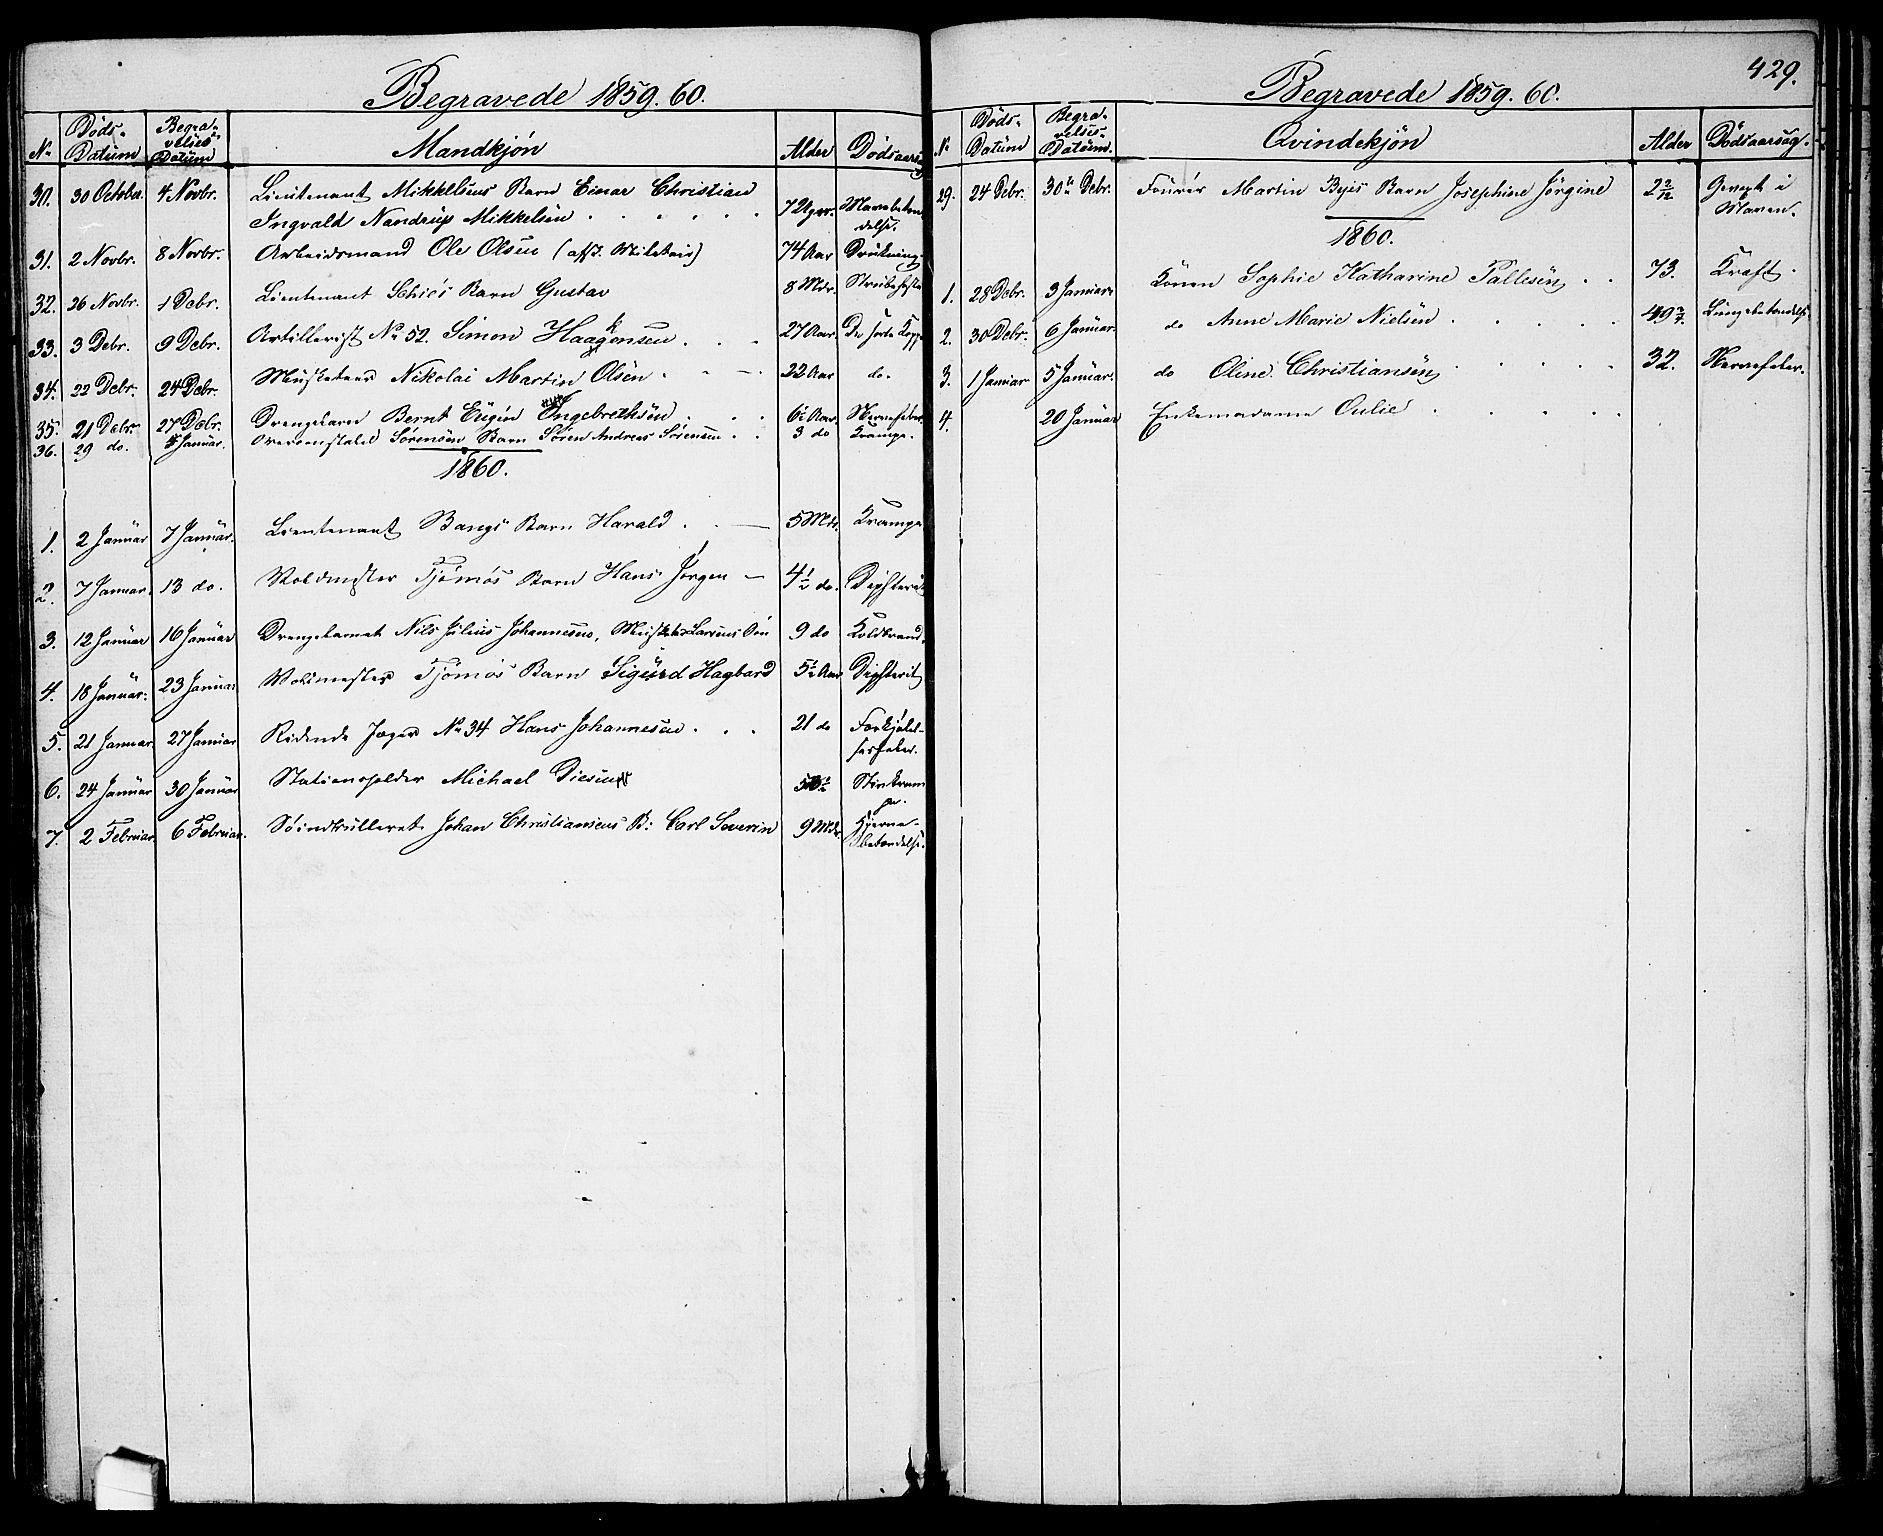 Begravede 1859.60.
No Døds- Datum Begravelses Datum Mandkjøn Alder Dødsaarsag
30. 30 October 4 Novbr. Lieutenant Mikkelsens Barn Einar Christian
Ingvald Nandrup Mikkelsen 7 Uger. Mavebetændelse.
31. 2 Novbr. 8 Novbr. Arbeidsmand Ole Olsen (afsk. Militair) 74 Aar Drukning.
32. 26 Novbr. 1 Debr. Lieutenant Schiés Barn Gustav 8 Mdr. Strubehoste
33. 3 Debr. 9 Debr. Artillerist No 52. Simon Haagensen 27 Aar De sorte Kopper
34. 22 Debr. 24 Debr. Musketeer Nikolai Martin Olsen 22 Aar do.
35. 21 Debr. 27 Debr. Drengebarn Bernt Eugen Engebrethsen 6½ Aar Nervefeber
36. 29 do. 4 Januar. Overconstabel Sørensen Barn Søren Andreas Sørensen 3 do Krampe.
1860.
1. 2 Januar 7 Januar. Lieutenant Bangs Barn Harald 5 Mdr. Krampe
2. 7 Januar. 13 do. Voldmester Tjømøs Barn Hans Jørgen 4½ do. Diphterit
3. 12 Januar 16 Januar Drengebarnet Nils Julius Johannesen, Musketeer Larsens Søn 9 do Koldbrand.
4. 18 Januar. 23 Januar Voldmester Tjømøs Barn Sigurd Hagbard 5½ Aar Diphterit
5. 21 Januar. 27 Januar Ridende Jæger No 34 Hans Johannesen 21 do Forkjølelsesfeber.
6. 24 Januar 30 Januar Stationsholder Michael Diesen Stivkrampe.
7. 2 Februar. 6 Februar. Søindrulleret Johan Christiansens B: Carl Severin 9 Mdr. Hjernebetændelse.
429.
Begravede 1859.60.
No Døds- Datum Begravelses- Datum. Qvindekjøn Alder Dødsaarsag.
29. 24 Debr. 30te Debr. Fourér Martin Byes Barn Josephine Jørgine 2 2/12 Gevext i Maven.
1860.
1. 28 Debr. 3 Januar Konen Sophie Katharine Pallesen 73. Kræft.
2. 30 Debr. 6 Januar. do Anne Marie Nielsen 49 ¾. Lungebetændelse.
3. 1 Januar 5 Januar. do Oline Christiansen 32. Nervefeber.
4. 20 Januar Enkemadame Oulie